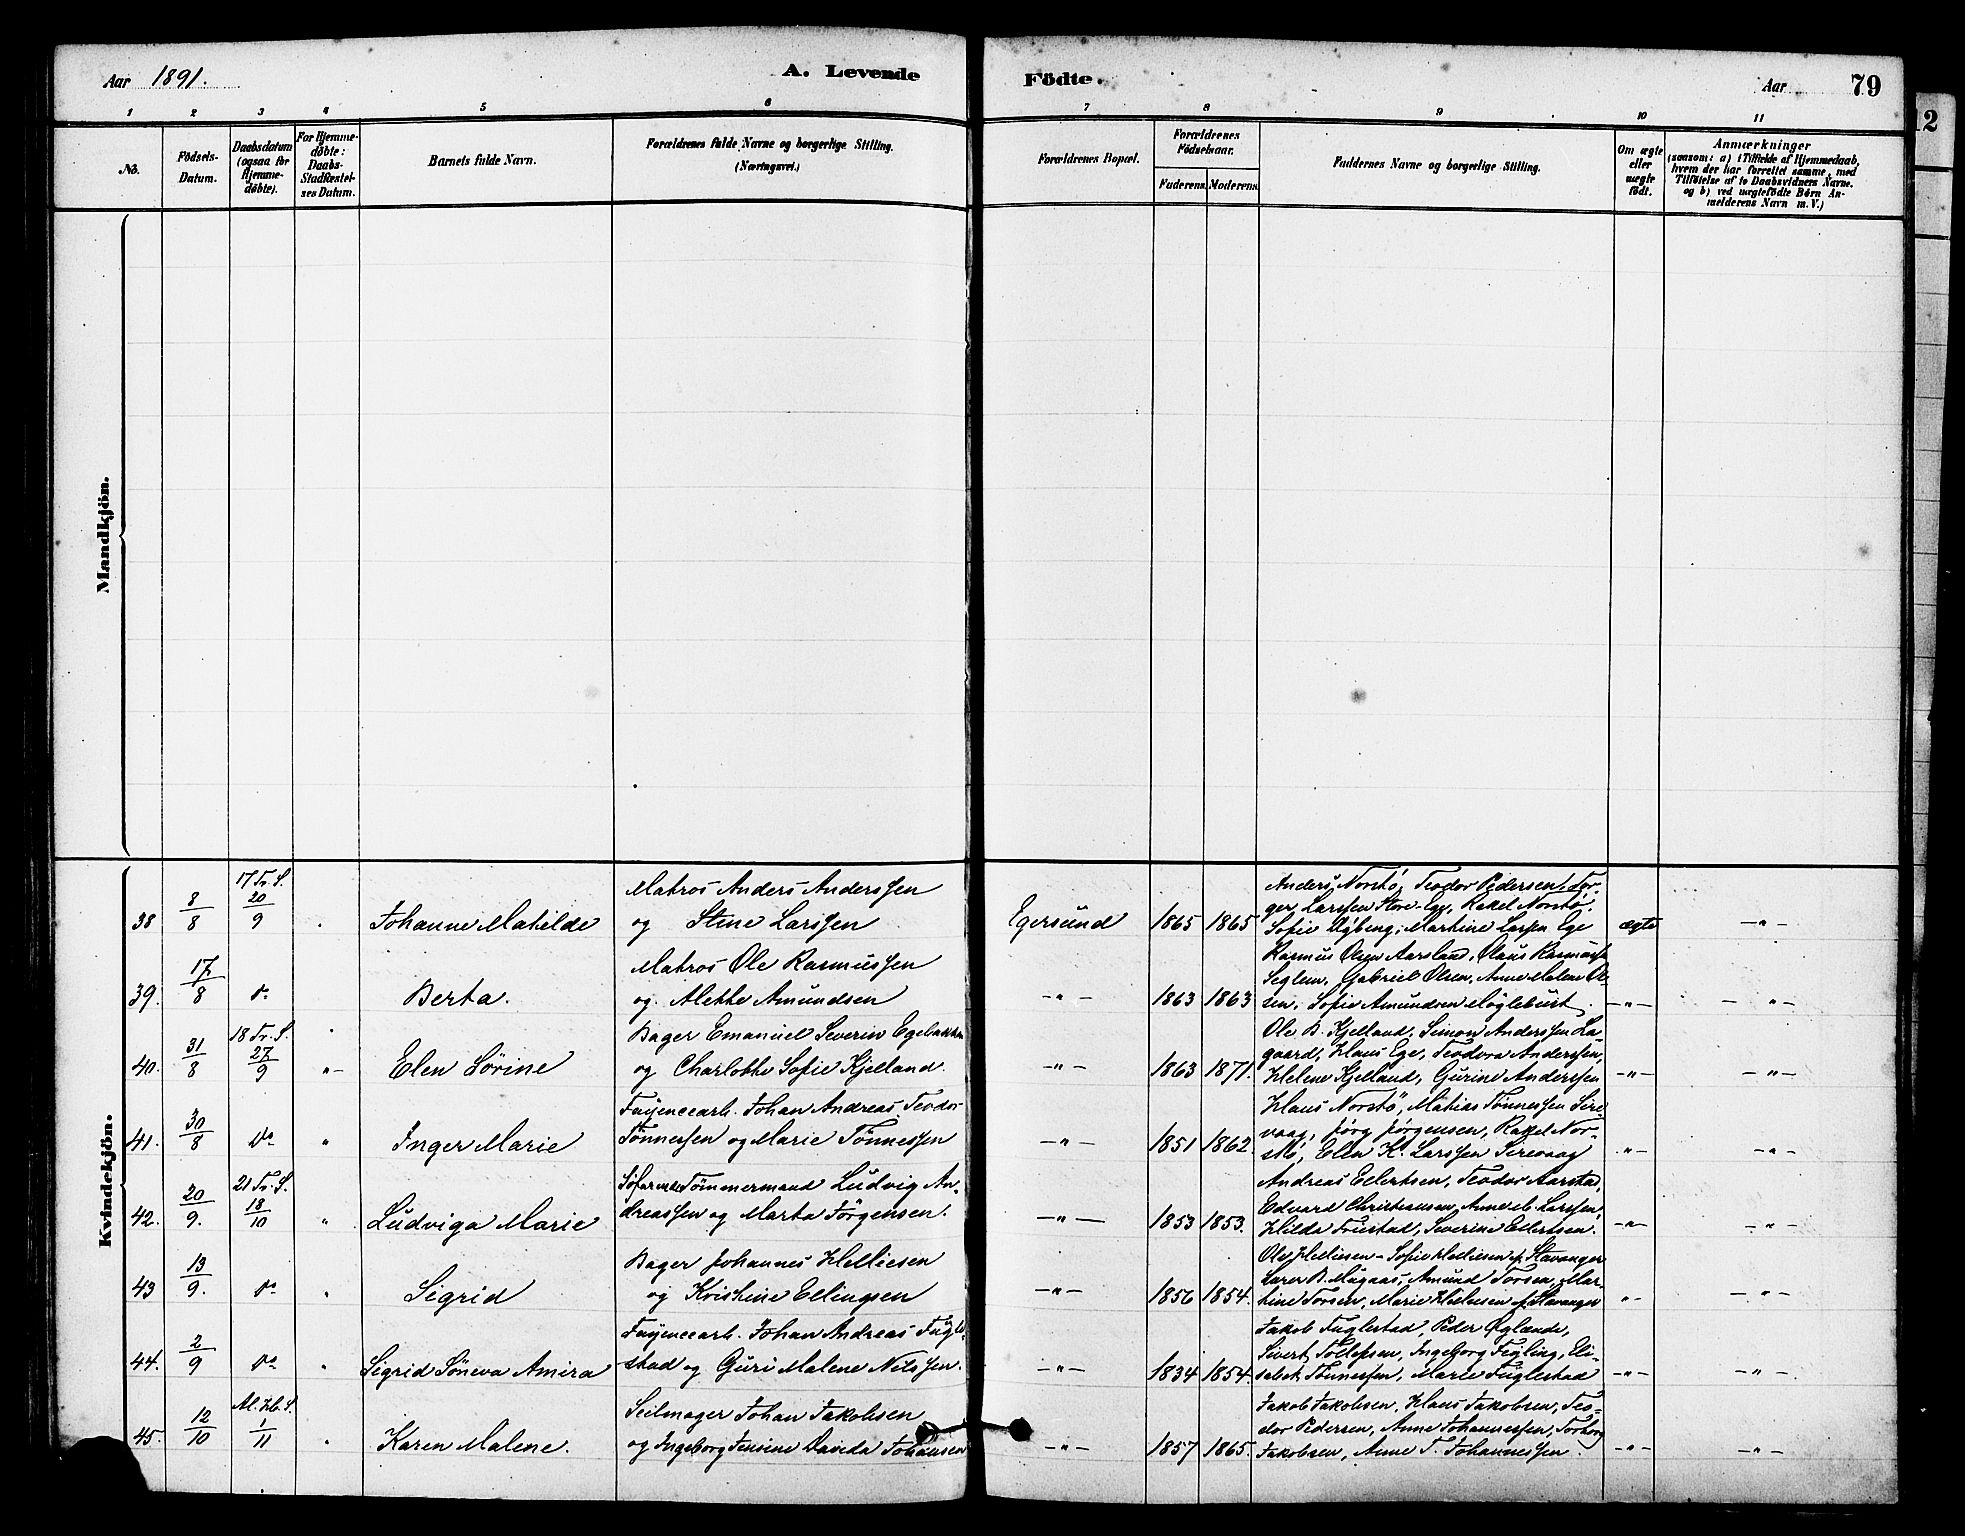 Aar 1891.
A. Levende
Födte.
Aar
79
12
1 2 3 4 5 6 7 8 9 10 11
No.
Födsels-
Datum.
Daabsdatum
(ogsaa for
Hjemme-
døbte).
For Hjemme-
døbte:
Daabs-
Stadfæstel-
ses Datum.
Barnets fulde Navn.
Forældrenes fulde Navne og borgerlige Stilling.
(Næringsvei.)
Forældrenes Bopæl.
Forældrenes
Födselsaar.
Faderens. Moderens.
Faddernes Navne og borgerlige Stilling.
Om ægte
eller
uægte
födt.
Anmærkninger
(saasom: a) i Tilfælde af Hjemmedaab,
hvem der har forrettet samme, med
Tilføielse af to Daabsvidners Navne.
og b) ved uægtefödte Börn An-
melderens Navn m. V.)
Mandkjön.
Kvindekjön.
38
8/8
17 Tr. S.
20/9
Johanne Matilde
Matros Anders Anderssen
og Stine Larssen
Egersund
1865 1865
Anders Norstø, Teodor Pedersen, Tor-
ger Larssen Store-Ege, Rakel Norstø.
Sofie Nyberg, Martine Larsen Ege
ægte
-"-
39.
17/8
do
Berta.
Matros Ole Rasmussen
og Alette Amundsen
-"-
1863 1863
Rasmus Olsen Aarsland, Olaus Rasmussen
Seglem, Gabriel Olsen, Anne Malene Ol-
sen, Sofie Amundsen
-"-
-"-
40.
31/8
18 Tr. S.
27/9
-"-
Elen Sørine
Bager Emanuel Severin Egebakken
og Charlotte Sofie Kjelland
-"-
1863 1871.
Ole B. Kjelland, Simon Anderssen La-
gaard, Klaus Ege, Teodora Anderssen,
Helene Kjelland, Gurine Anderssen
-"-
-"-
41.
30/8
do
"
Inger Marie
Fayencearb. Johan Andreas Teodor
Tønnessen og Marie Tønnessen
-"-
1851 1862.
Klaus Norstø, Mathias Tønnessen Sire-
vaag, Jørg Jørgensen, Rakel Nor-
stø, Elen K. Larssen Sirevaag
-"-
-"-
42.
20/9.
21 Tr. S.
18/10
"
Ludviga Marie
Tømmermand Ludvig An-
dreassen og Marta Jörgensen.
-"-
1853 1853.
Andreas Eilertsen, Teodor Aarstad,
Edvard Christiansen, Anne M. Larssen,
Hilda Friestad, Severine Eilertsen.
-"-
-"-
43
13/9.
do
"
Sigrid
Bager Johannes Helliesen
og Kristine Ellingsen
-"-
1856 1854.
Ole Helliesen - Sofie Helliesen f. Stavanger
Larer B. Mugaas, Amund Torsen, Mar-
tine Torsen, Marie Helliesen f. Stavanger
"-
-"-
44.
2/9
do
"
Sigrid Søneva Amira
Fayencearb. Johan Andreas Fugle-
stad og Guri Malene Nilssen.
-"-
1834 1854.
Jakob Fuglestad, Peder Øglænde,
Sivert Tollefsen, Ingeborg Tegling, Eli-
sabet Tönnessen, Marie Fuglestad
-"-
-"-
45.
12/10
Al. Hl. S.
1/11
"
Karen Malene.
Seilmager Johan Jakobsen
og Ingeborg Jensine Davida Johansen
-"-
1857 1865.
Jakob Jakobsen, Klaus Jakobsen, Teo-
dor Pedersen, Anne Johannessen, Torborg
Jakobsen, Anne T. Johannessen.
-"-
-"-